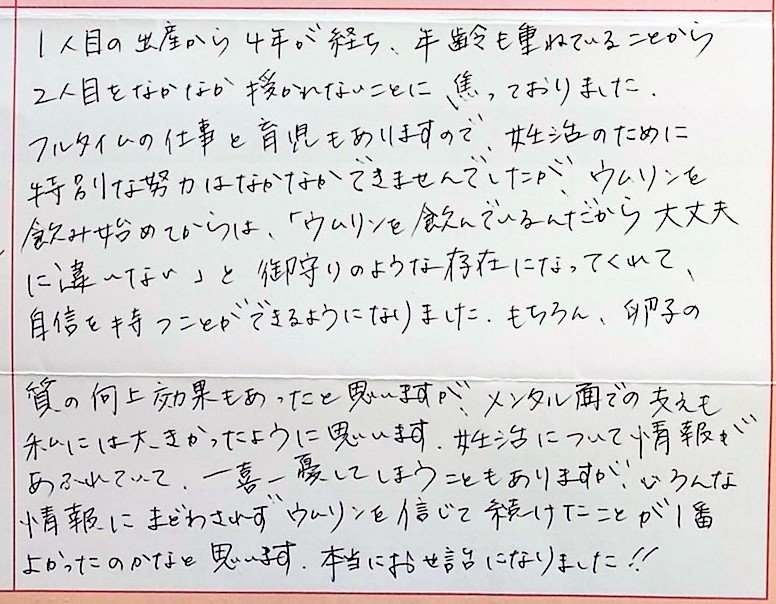 1人目の出産から4年が経ち、年齢も重ねていることから
2人目をなかなか授かれないことに、焦っておりました.
フルタイムの仕事と育児もありますので、妊活のために
特別な努力はなかなかできませんでしたが、ウムリンを
飲み始めてからは、「ウムリンを飲んでいるんだから大丈夫
に違いない」と御守りのような存在になってくれて、
自信を持つことができるようになりました. もちろん、卵子の
質の向上効果もあったと思いますが、メンタル面での支えも
私には大きかったように思います. 妊活について情報が
あふれていて、一喜一憂してしまうこともありますが、いろんな
情報にまどわされずウムリンを信じて続けたことが1番
よかったのかなと思います. 本当にお世話になりました!!